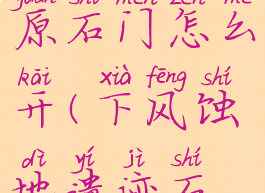 yuán shí mén zěn me
原石门怎么
kāi xià fēng shí
开(下风蚀
dì yí jì shí
地遗迹石